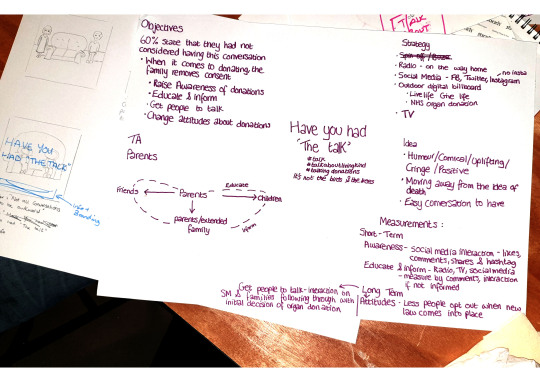 Objectives
60% state that they had not
considered having this conversation
• When it comes to donating the
family removes consent
• Raise Awareness of donations
• Educate & inform
• Get people to talk
• Change attitudes about donations
TA
Parents
Friends
Parents
Educate
Children
parents/extended
family
inform
Have you had
"The talk"
#talk
#talkaboutlivingkind
#talking donations
It's not the birds & the bees
Strategy
Radio - on the way home
Social Media - FB, Twitter, Instagram
no insta
Outdoor digital billboard
• Live life Give life
• NHS organ donation
• TV
Idea
• Humour/Comical/Uplifting/
Cringe/Positive
• Moving away from the idea of
death
• Easy conversation to have
Measurements:
Short-Term
Awareness - social media interaction - likes,
comments, shares & hashtag
Educate & inform - Radio, TV, social media
- measure by comments, interaction
if not informed
Long Term
Attitudes - Less people opt out when new
law comes into place
Get people to talk - interaction on
SM & families following through with
initial decision of organ donation
HAVE YOU
HAD "THE TALK"
info &
Branding
Not all conversations